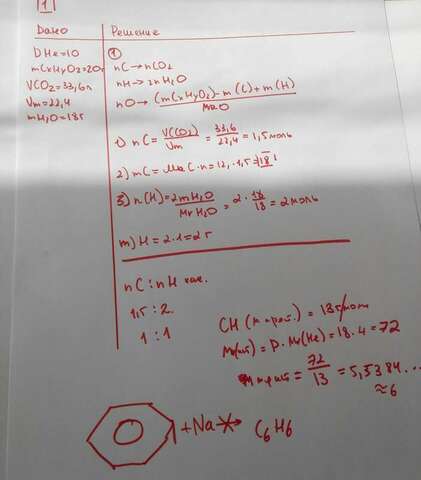 1
Дано
Решение
DHe=10
mCxHyOz=20г
VCO2=33,6л
Vm=22,4
mH2O=18г
1
nC→nCO2
nH→2nH2O
nO→ (mCxHyOz)-m(C)+m(H) / MaO
1) nC= V(CO2) / Vm = 33,6 / 22,4 = 1,5 моль
2) mC=Ma C·n=12,·1,5=18г
3) n(H)=2mH2O / MrH2O = 2·18 / 18 = 2моль
m)H=2·1=2г
nC:nH
1,5:2.
1:1
CH ( )=13г/моль
=D·Mr(He)=18·4=72
= 72 / 13 =5,5384...
≈6
+Na→ C6H6